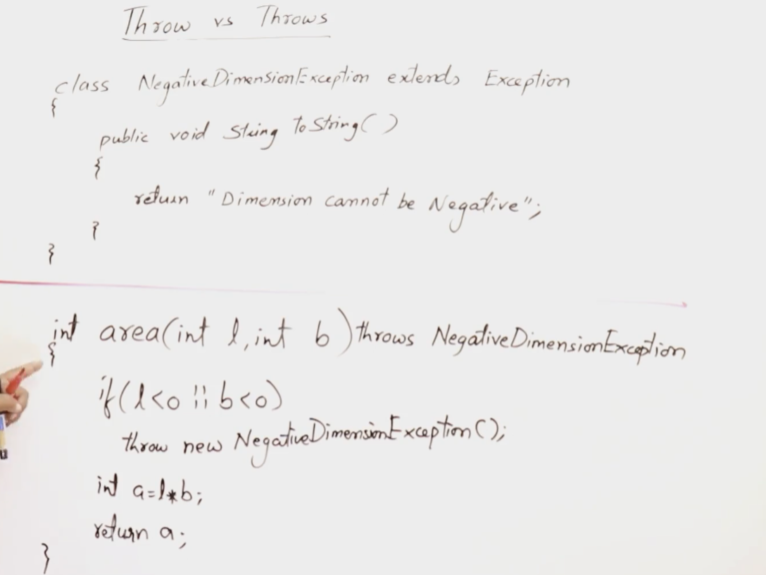 Throw vs Throws
class NegativeDimensionException extends Exception
{
public void String toString()
{
return "Dimension cannot be Negative";
}
}
int area(int l, int b) throws NegativeDimensionException
{
if(l<0 || b<0)
throw new NegativeDimensionException();
int a=l*b;
return a;
}